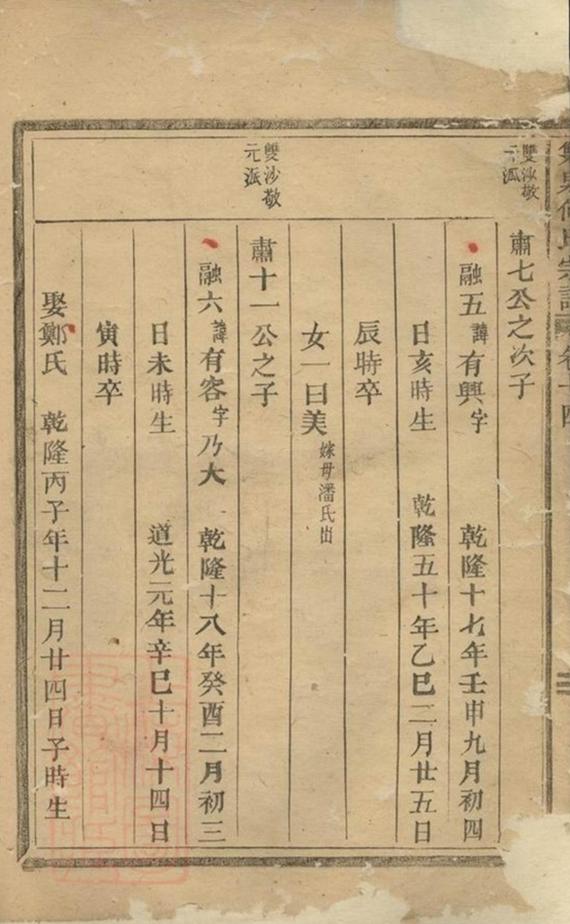 雙沙敬
元派
肅七公之次子
融五諱有興字 乾隆十七年壬申九月初四
日亥時生 乾隆五十年乙巳二月廿五日
辰時卒
女一曰美嫁母潘氏出
雙沙敬
元派
肅十一公之子
融六諱有容字乃大 乾隆十八年癸酉二月初三
日未時生 道光元年辛巳十月十四日
寅時卒
娶鄭氏 乾隆丙子年十二月廿四日子時生